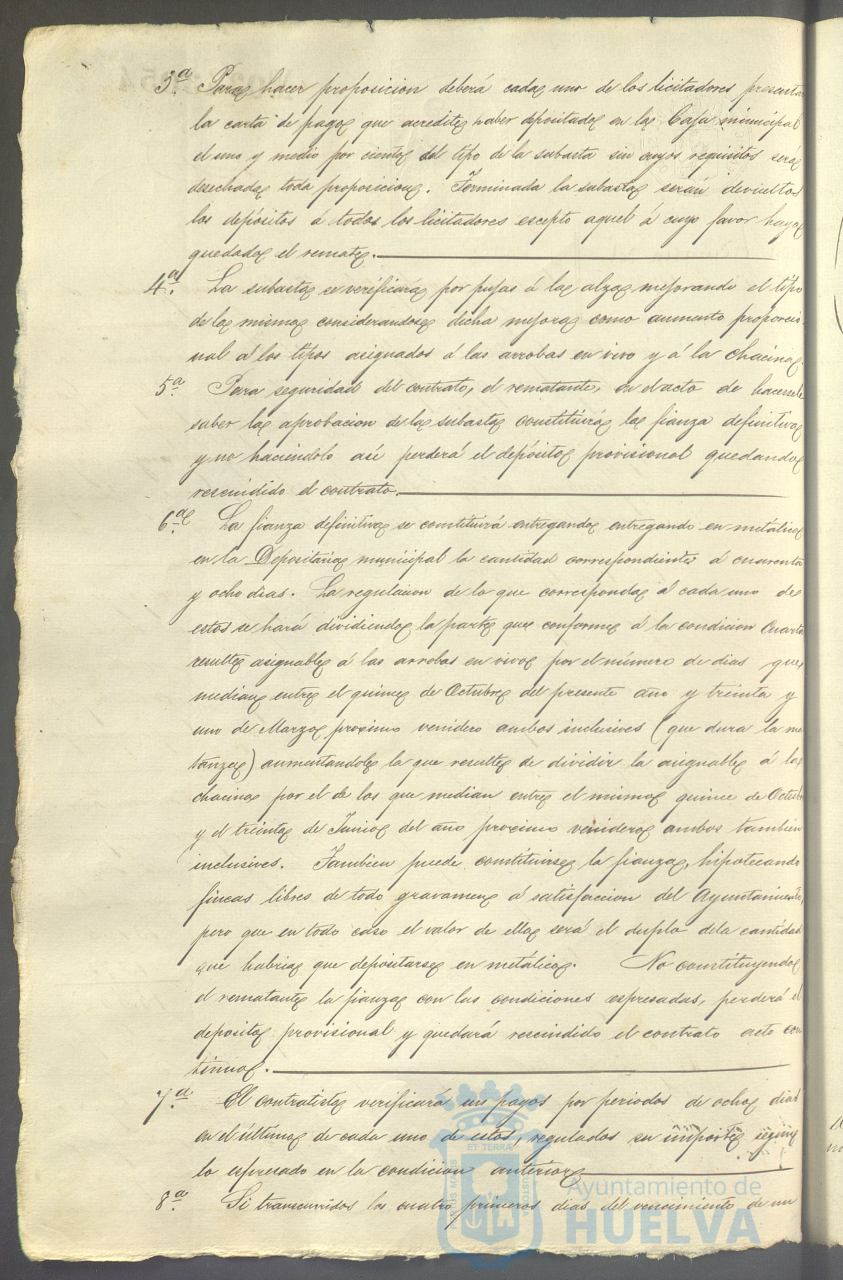 3ª. Para hacer proposicion deberá cada uno de los licitadores presentar
la carta de pago que acredite haber depositado en la Caja municipal
el uno y medio por ciento del tipo de la subasta sin cuyos requisitos será
desechada toda proposicion. Terminada la subasta serán devueltos
los depósitos á todos los licitadores escepto aquel á cuyo favor haya
quedado el remate.
4ª. La subasta se verificará por pujas á la alza mejorando el tipo
de la misma considerandose dicha mejora como aumento proporcio-
nal á los tipos asignados á las arrobas en vivo y á la chacina.
5ª. Para seguridad del contrato, el rematante, en el acto de hacersele
saber la aprobacion de la subasta constituirá la fianza definitiva
y no haciéndolo asi perderá el depósito provisional quedando
rescindido el contrato.
6ª. La fianza definitiva se constituirá entregando entregando en metálico
en la Depositaria municipal la cantidad correspondiente á cuarenta
y ocho dias. La regulacion de lo que corresponda á cada uno de
estos se hará dividiendo la parte que conforme á la condicion cuarta
resulte asignable á las arrobas en vivo por el número de dias que
median entre el quince de Octubre del presente año y treinta y
uno de Marzo procsimo venidero ambos inclusives (que dura la ma
tanza) aumentandole la que resulte de dividir la asignable á la
chacina por el de los que median entre el mismo quince de Octubre
y el treinta de Junio del año procsimo venidero ambos tambien
inclusives. Tambien puede constituirse la fianza, hipotecando
fincas libres de todo gravamen á satisfaccion del Ayuntamiento,
pero que en todo caso el valor de ella será el duplo de la cantidad
que habria que depositarse en metálico. No constituyendo
el rematante la fianza con las condiciones espresadas, perderá el
deposito provisional y quedará rescindido el contrato acto con
tinuo.
7ª. El contratista verificará sus pagos por periodos de ocho dias
en el último de cada uno de estos, regulados su importe segun
lo espresado en la condicion anterior
8ª. Si transcurridos los cuatro primeros dias del vencimiento de un
ET TERRA
Ayuntamiento de
HUELVA